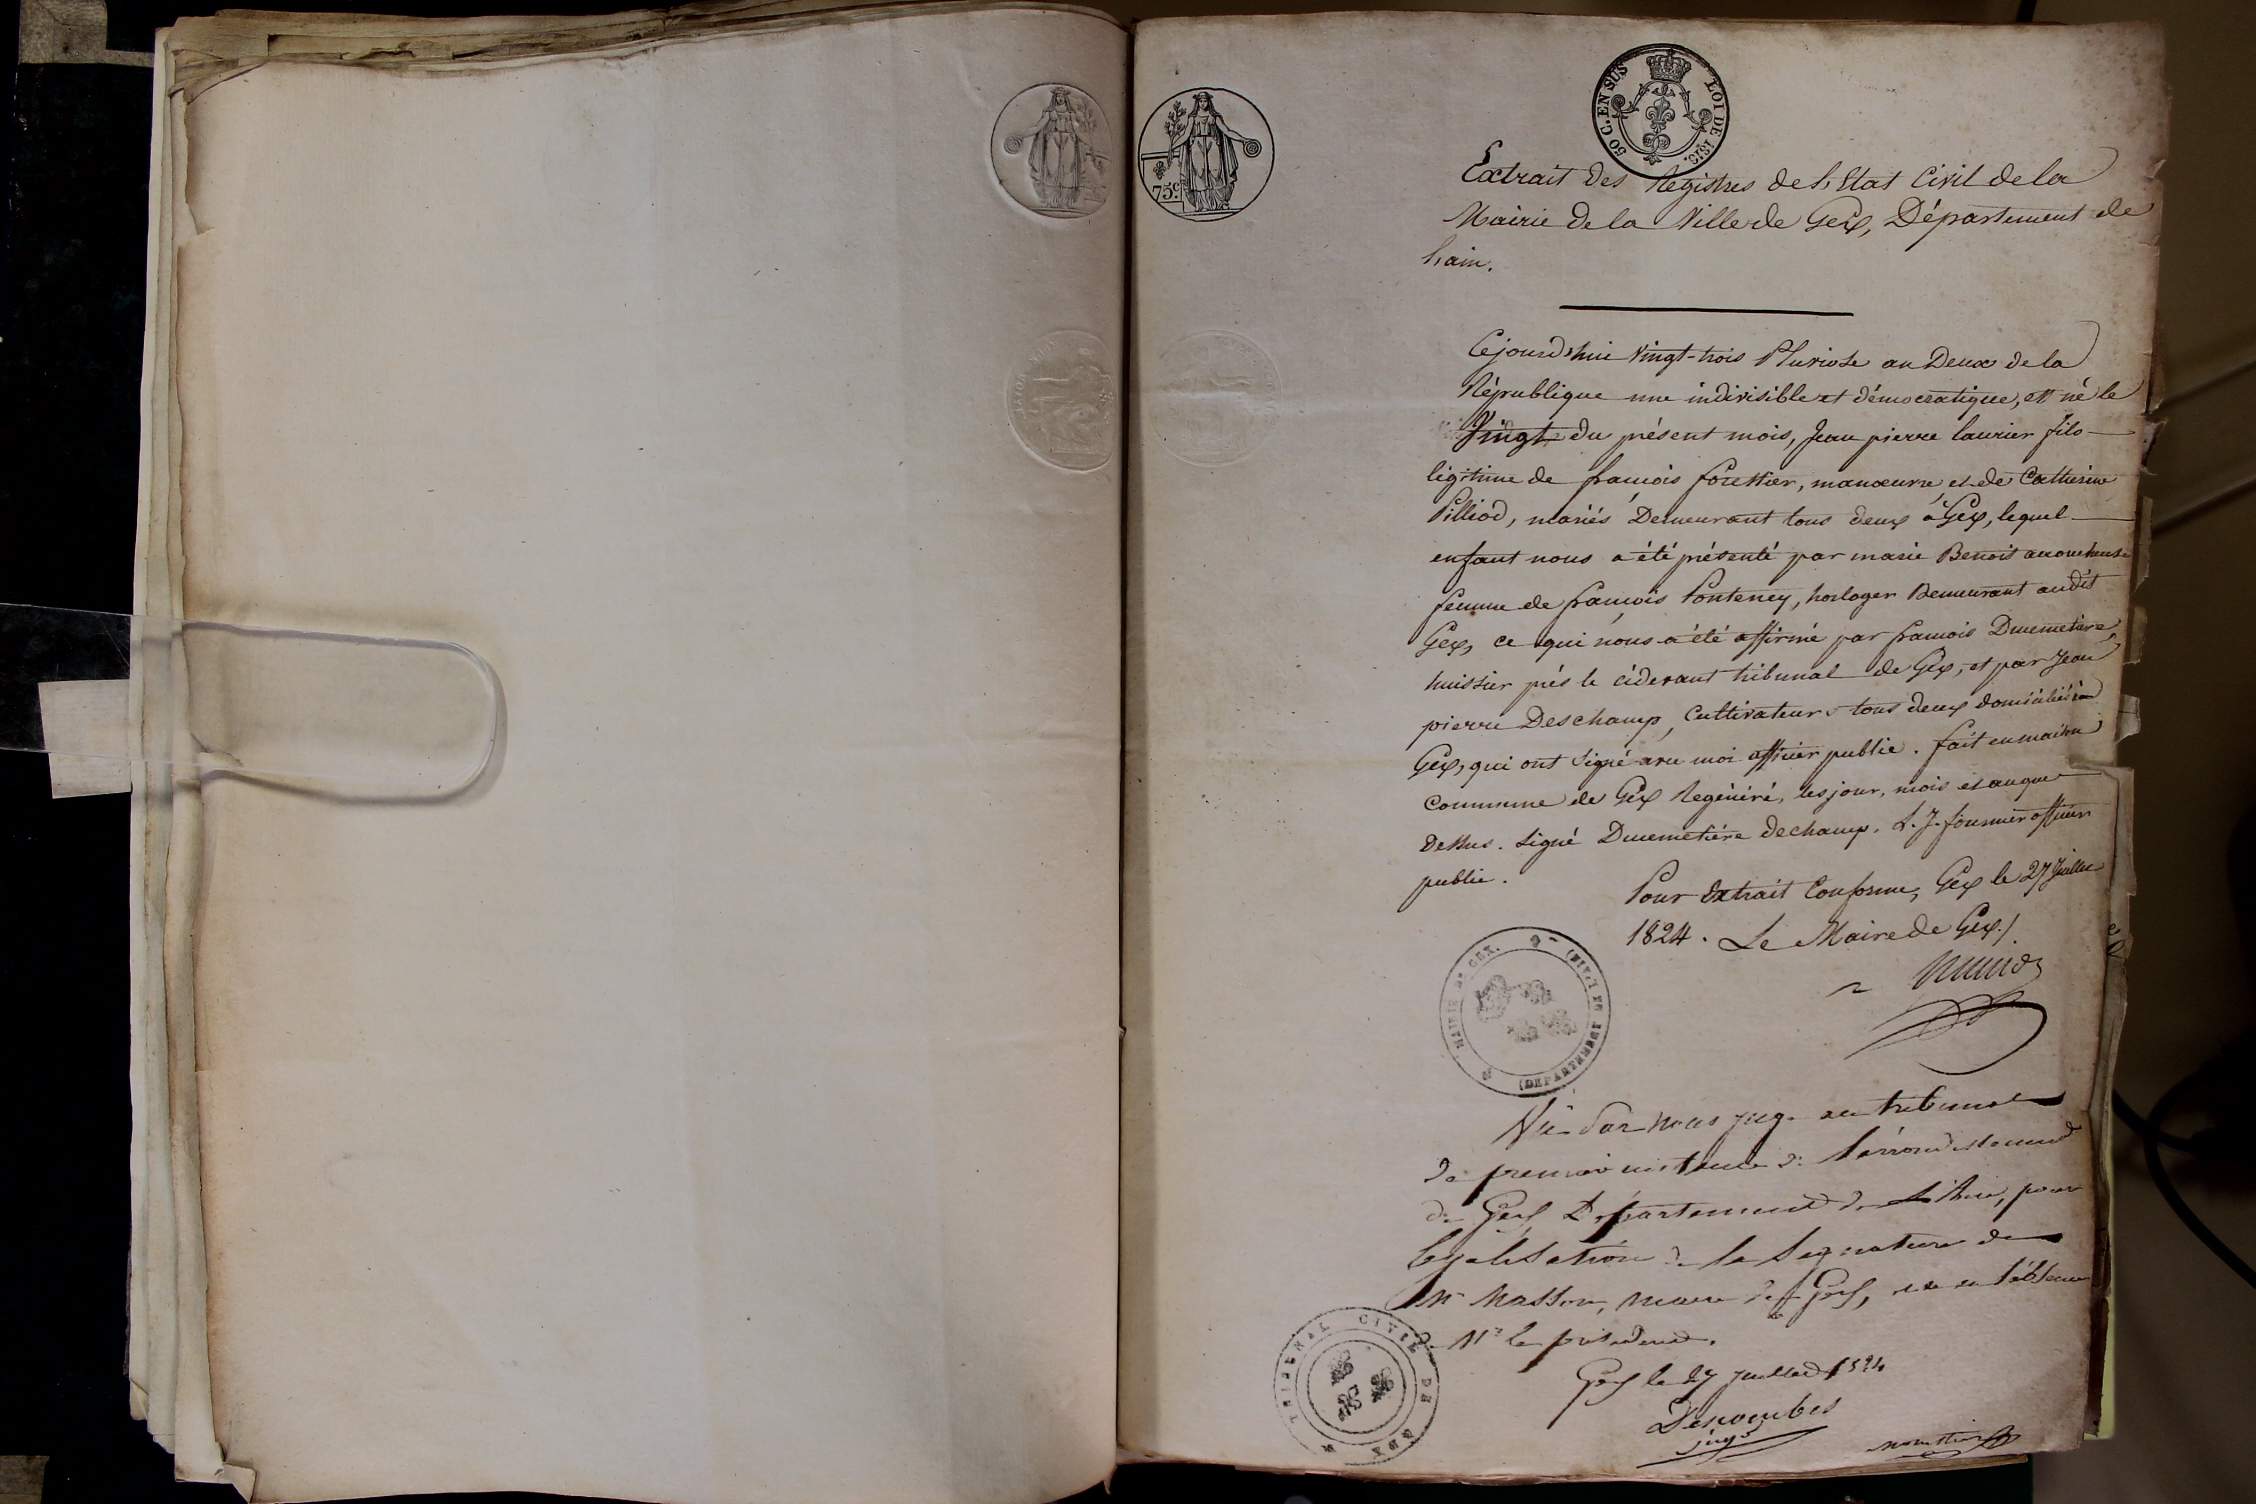 50 C. EN SUS LOI DE 1816.
75.c
Extrait des Registres de l'Etat Civil de la
Mairie de la Ville de Gex, Département de
l'ain.
Cejourd'hui vingt-trois Pluviose an Deux de la
République une indivisible et démocratique, est né le
Vingt du présent mois, Jean pierre laurier fils
légitime de françois forestier, manœuvre, et de Catherine
Pilliod, mariés Demeurant tous deux à Gex, lequel
enfant nous a été présenté par marie Benoit accoucheuse
femme de françois Ponteney, horloger Demeurant audit
Gex, ce qui nous a été affirmé par françois Ducimetière,
huissier près le cidevant tribunal de Gex, et par Jean
pierre Deschamp, Cultivateur, tous deux domiciliés à
Gex, qui ont signé avec moi officier public. fait en maison
Commune de Gex Régénéré, les jour, mois et an que
Dessus. Signé Ducimetière dechamp. L. J. fournier officier
public.
Pour Extrait Conforme, Gex le 27 Juillet
1824. Le Maire de Gex /.
MAIRIE DE GEX. (DÉPARTEMENT DE L'AIN)
Vu par nous juge au tribunal
de première instance de l'arrondissement
de Gex Département de l'Ain, pour
légalisation de la signature de
Mr Masson, maire de Gex, en l'absence
de Mr le président.
Gex le 27 juillet 1824
Descombes
juge
TRIBUNAL CIVIL DE GEX